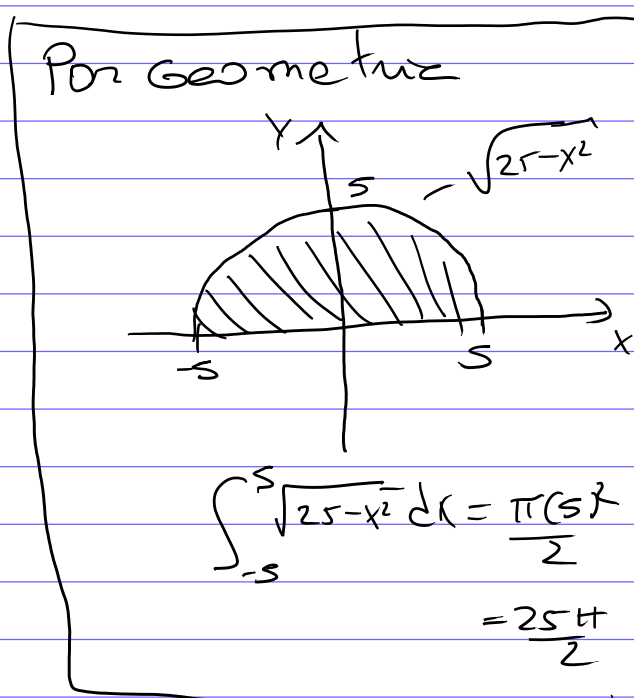 Por Geometria
Y
5
√25-x²
-5
5
x
∫₋₅⁵ √25-x² dx = π(5)²/2
= 25π/2